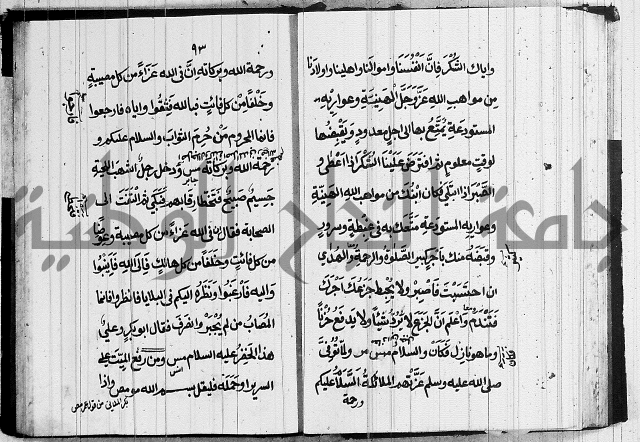 واياك الشكر فان انفسنا واموالنا واهلينا واولادنا
من مواهب الله عز وجل الهنيئة وعواريه
المستودعة يمتع بها الى اجل معدود ويقبضها
لوقت معلوم ثم افترض علينا الشكر اذا اعطى و
الصبر اذا ابتلى فكان ابنك من مواهب الله الهنيئة
وعواريه المستودعة متعك به فى غبطة وسرور
وقبضه منك باجر كبير الصلوة والرحمة والهدى
ان احتسبت فاصبر ولا يحبط جزعك اجرك
فتندم واعلم ان الجزع لا يرد شيئا ولا يدفع حزنا
وما هو نازل فكان والسلام مس مر ولما توفى
صلى الله عليه وسلم عزتهم الملائكة السلام عليكم
ورحمة
٩٣
ورحمة الله وبركاته ان فى الله عزاء من كل مصيبة
وخلفا من كل فائت فبالله فثقوا واياه فارجوا
فانما المحروم من حرم الثواب والسلام عليكم و
رحمة الله وبركاته مس ودخل رجل اشهب اللحية
جسيم صبيح فتخطا رقابهم فبكى ثم التفت الى
الصحابة فقال ان فى الله عزاء من كل مصيبة وعوضا
من كل فائت وخلفا من كل هالك فالى الله فانيبوا
واليه فارغبوا ونظره اليكم فى البلايا فانظروا فانما
المصاب من لم يجبر وانصرف فقال ابو بكر وعلى
هذا الخضر عليه السلام مس ومن رفع الميت على
السرير او حمله فليقل بسم الله مو مص واذا